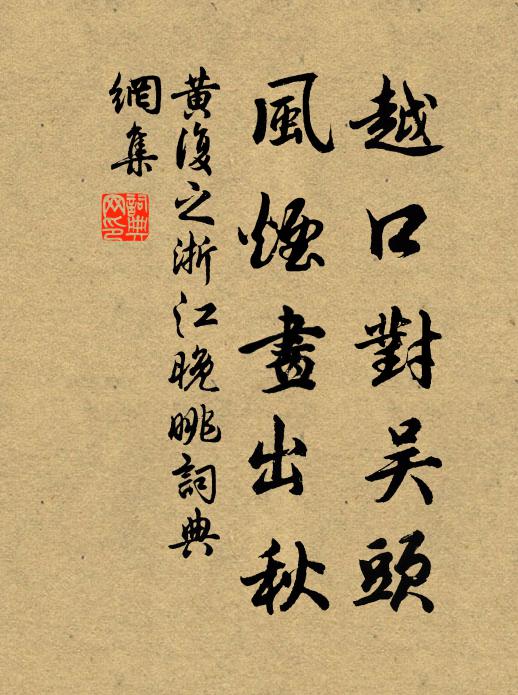 越口對吴頭
風煙畫出秋
黄復之浙江晚眺詞典
網集
詞典
网印